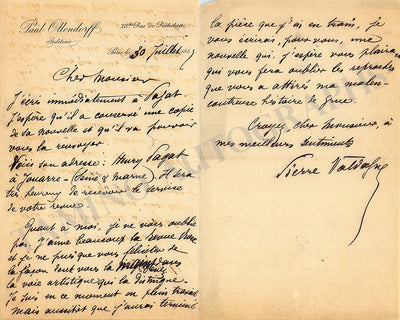 Paul Ollendorff
Éditeur
28bis Rue de Richelieu
Paris, le 30 Juillet 188
Cher Monsieur
J'écris immédiatement à Pagat
J'espère qu'il a conservé une copie
de sa nouvelle et qu'il va pouvoir
vous la renvoyer.
Voici son adresse: Henry Pagat
à Jouarre (Seine & Marne). Il sera
très heureux de recevoir le service
de votre revue.
Quant à moi, je ne vous oublie
pas. J'aime beaucoup la Revue Rose
et je ne puis que vous féliciter de
la façon dont vous la dans
la voie artistique qui la distingue.
Je suis en ce moment en plein travail
mais aussitôt que j'aurai terminé
la pièce que j'ai en train, je
vous écrirai, pour vous, une
nouvelle qui, j'espère vous plaira,
qui vous fera oublier les reproches
que vous a attirés ma malen-
contreuse histoire de grue.
Croyez, cher Monsieur, à
mes meilleurs sentiments
Pierre Valdagne